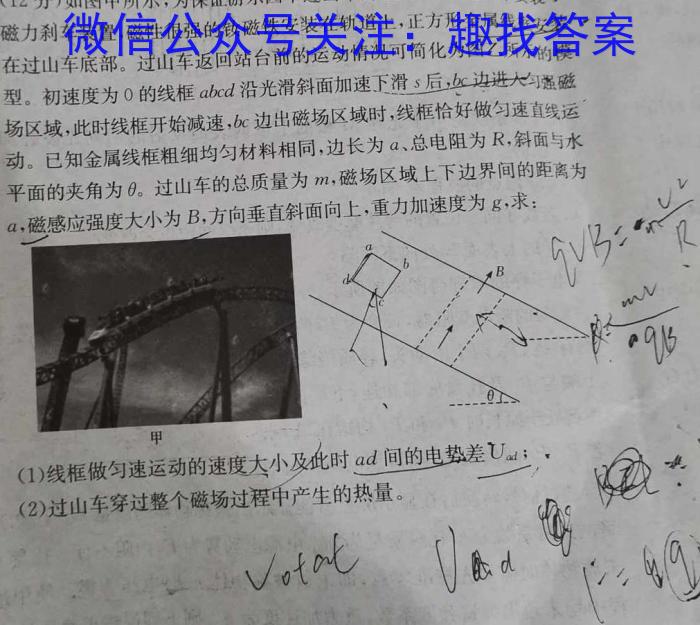 (12分)如图甲所示,为保证游乐园中过山车
磁力刹车装置,磁性很强的钕磁铁安装在轨道上,正方形金属线框安装
微信公众号关注:趣找答案
在过山车底部。过山车返回站台前的运动情况可简化为图乙所示的模
型。初速度为0的线框abcd沿光滑斜面加速下滑s后,bc边进入匀强磁
场区域,此时线框开始减速,bc边出磁场区域时,线框恰好做匀速直线运
动。已知金属线框粗细均匀材料相同,边长为a、总电阻为R,斜面与水
平面的夹角为θ。过山车的总质量为m,磁场区域上下边界间的距离为
a,磁感应强度大小为B,方向垂直斜面向上,重力加速度为g,求:
qvB=m v²/R
a
b
d
c
B
θ
甲
(1)线框做匀速运动的速度大小及此时ad间的电势差Uad;
(2)过山车穿过整个磁场过程中产生的热量。